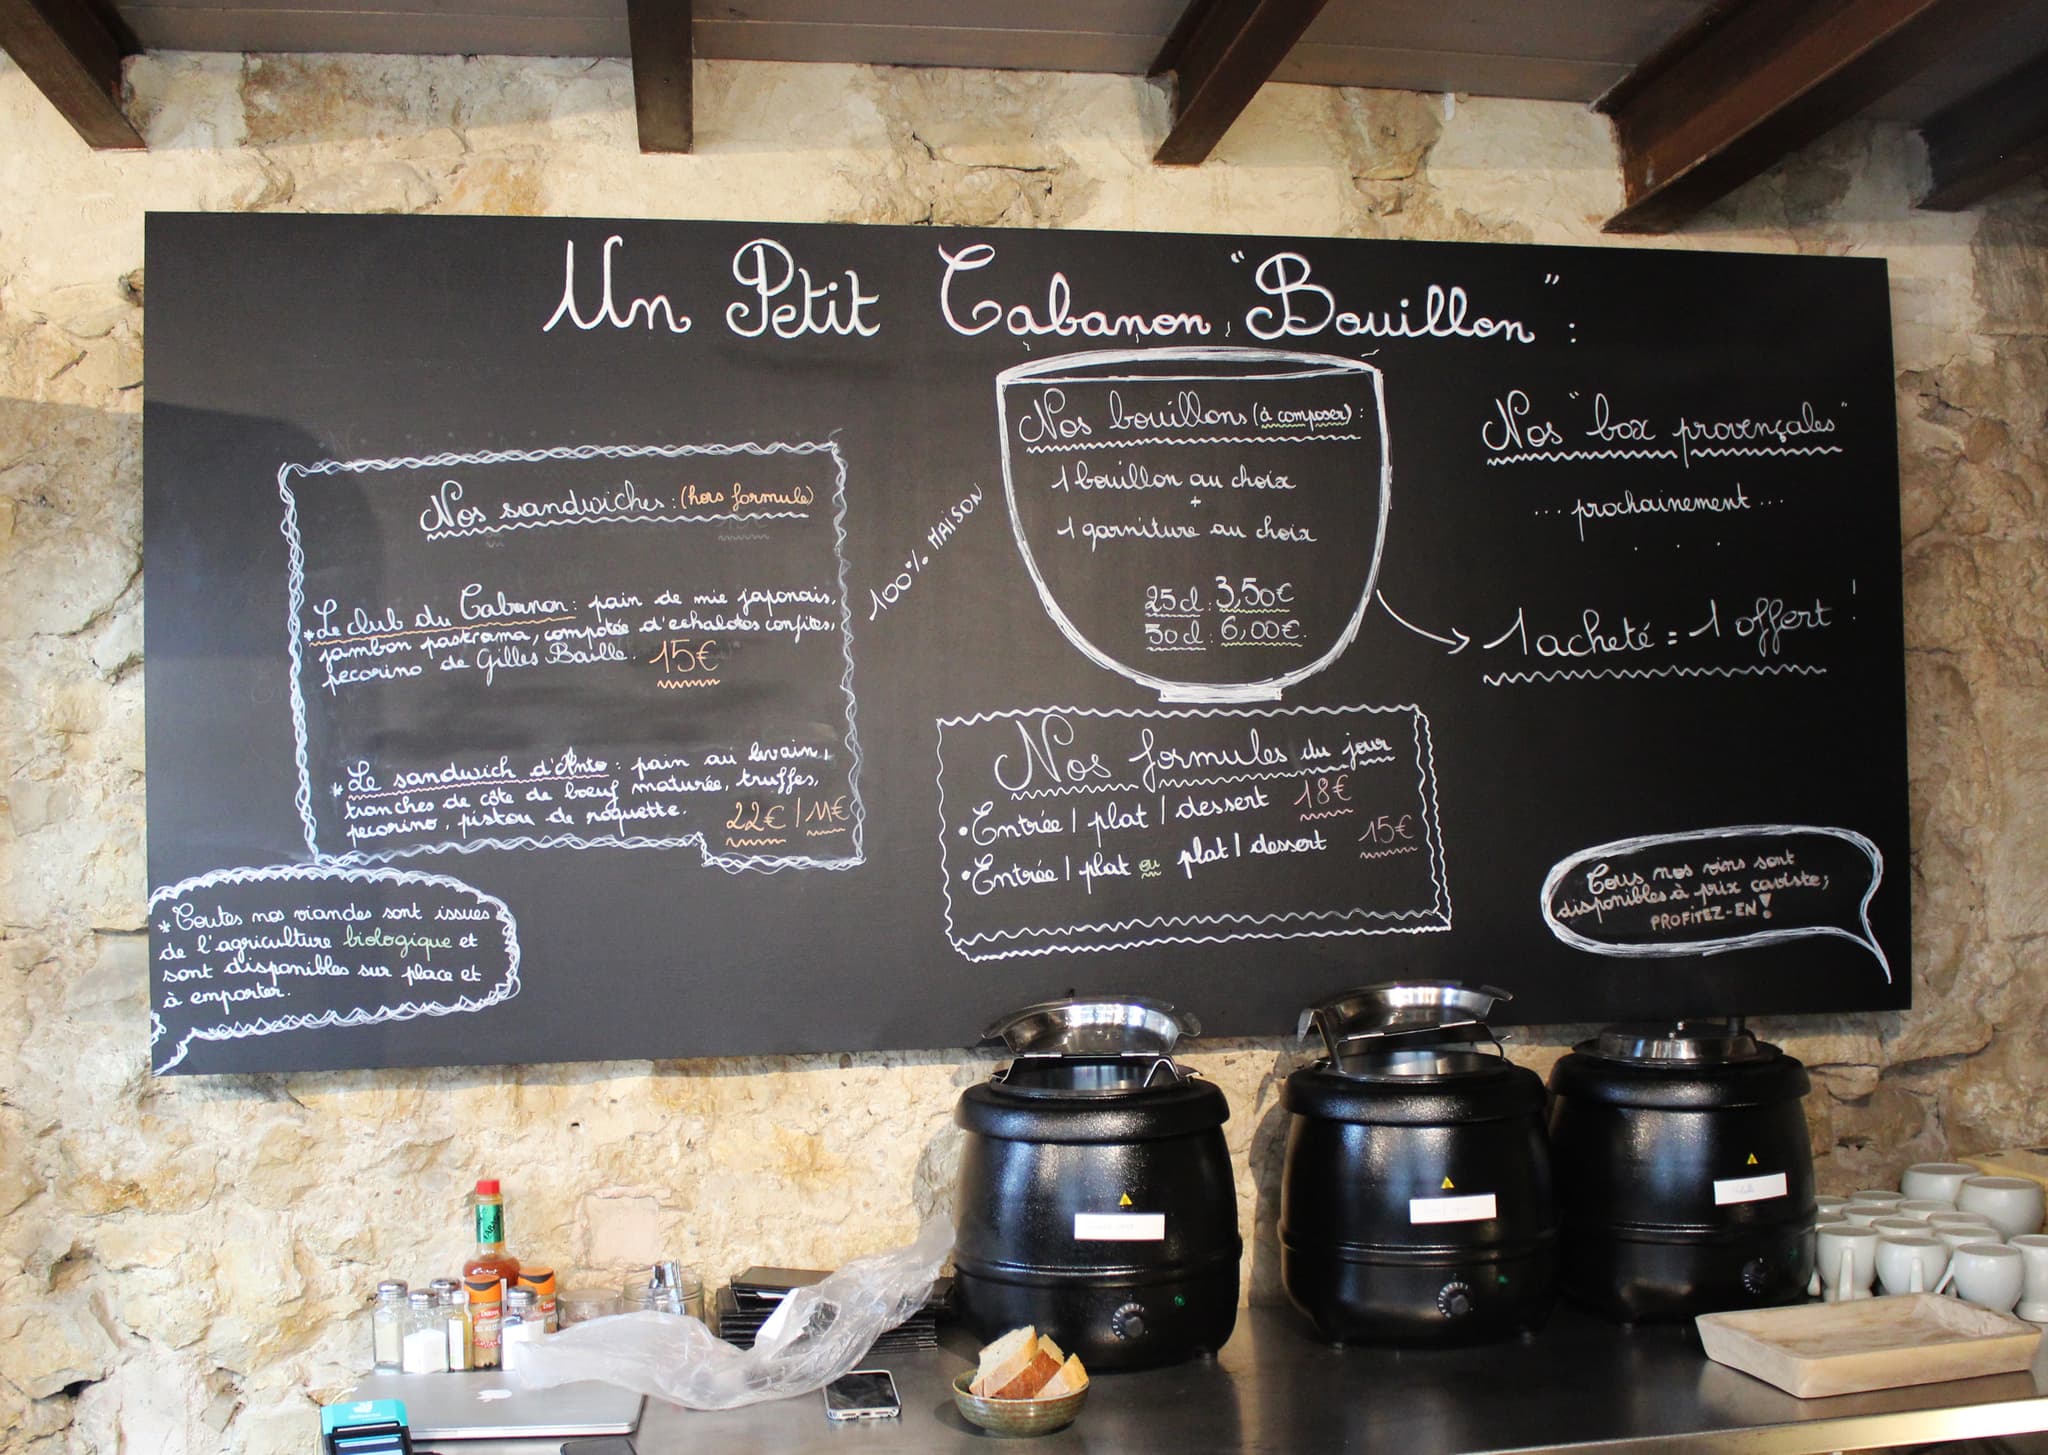 Un Petit Cabanon "Bouillon" :
Nos sandwiches : (hors formule)
* Le club du Cabanon : pain de mie japonais,
jambon pastrama, compotée d'echalotes confites,
pecorino de Gilles Baille. 15€
* Le sandwich d'Anto : pain au levain,
tranches de côte de bœuf maturée, truffes,
pecorino, pistou de roquette. 22€ / 11€
* Toutes nos viandes sont issues
de l'agriculture biologique et
sont disponibles sur place et
à emporter.
100% MAISON
Nos bouillons (à composer) :
1 bouillon au choix
+
1 garniture au choix
25cl : 3,50€
50cl : 6,00€.
Nos formules du jour
• Entrée / plat / dessert 18€
• Entrée / plat ou plat / dessert 15€
Nos "box provençales"
... prochainement ...
. . .
1 acheté = 1 offert !
Tous nos vins sont
disponibles à prix caviste ;
PROFITEZ-EN !